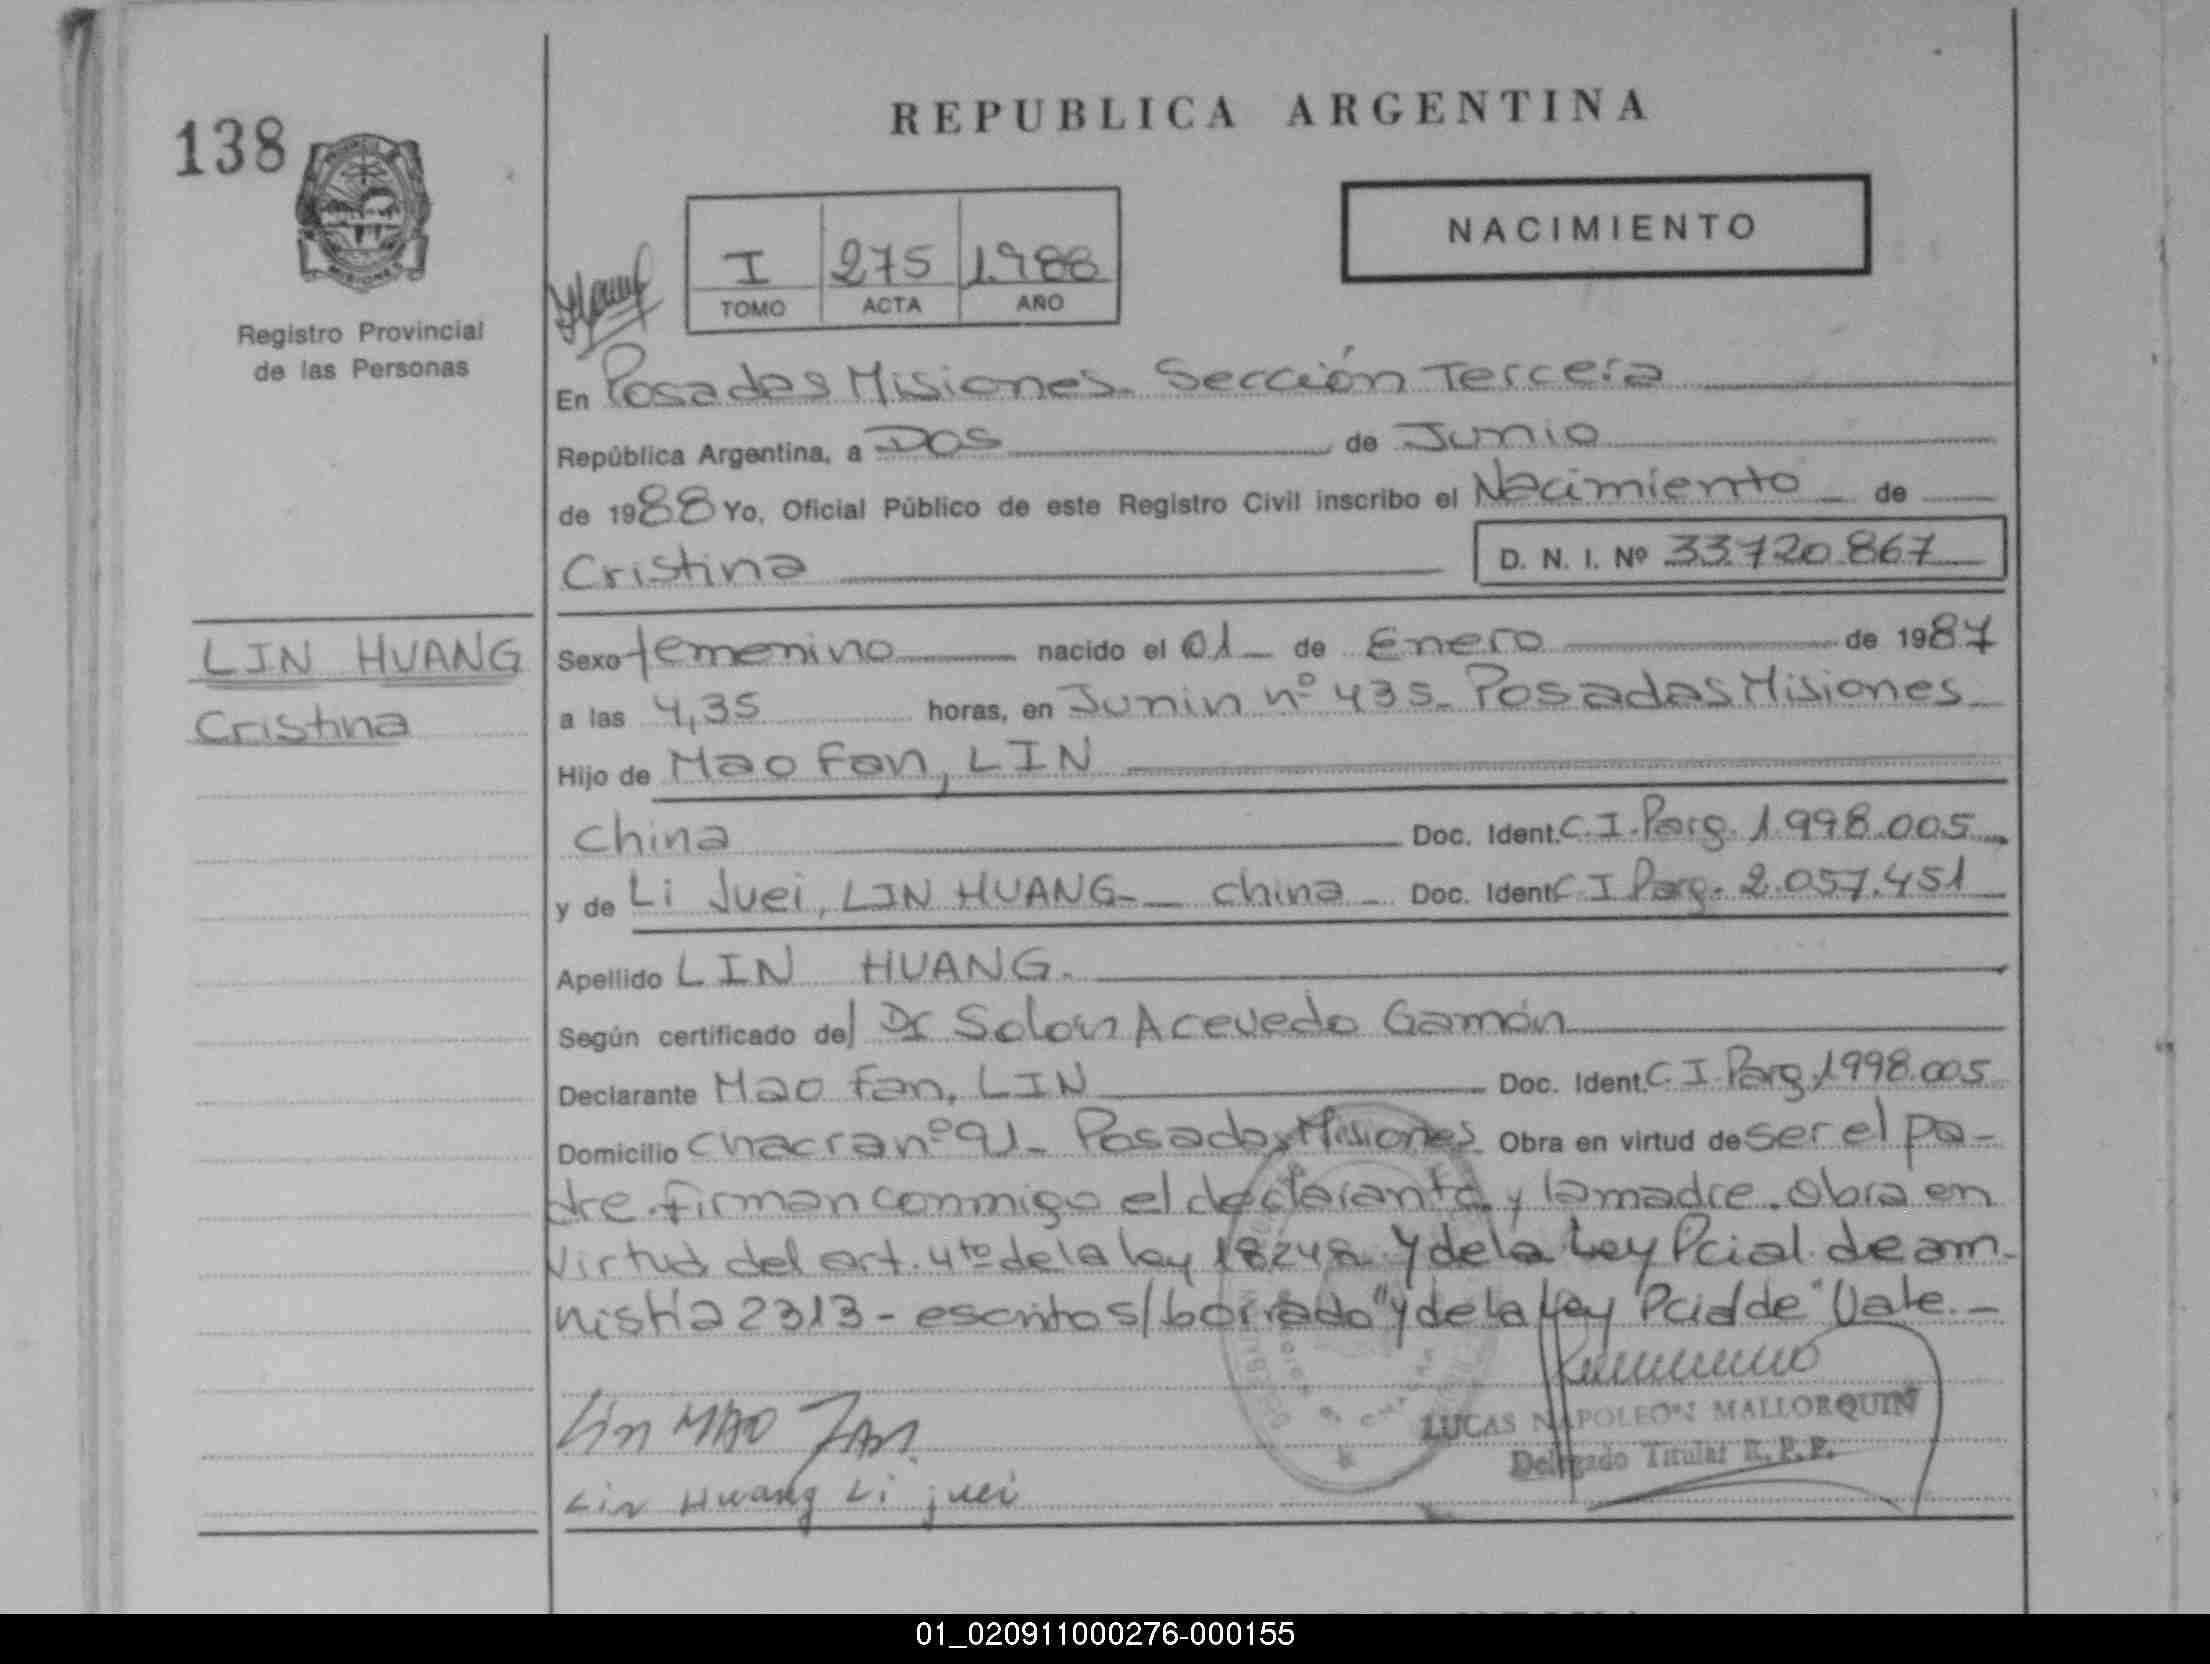 REPUBLICA ARGENTINA
138
NACIMIENTO
I 275 1.988
TOMO ACTA AÑO
MISIONES
Registro Provincial
de las Personas
En Posadas Misiones. Sección Tercera
República Argentina, a Dos de Junio
de 1988 Yo, Oficial Público de este Registro Civil inscribo el Nacimiento de
Cristina D. N. I. Nº 33.720.867
LIN HUANG
Cristina
Sexo femenino nacido el 01 de Enero de 1987
a las 4,35 horas, en Junin nº 435. Posadas Misiones
Hijo de Mao Fan, LIN
China Doc. Ident. C.I. Parg. 1.998.005
y de Li Juei, LIN HUANG - China - Doc. Ident. C I Parg. 2.057.451
Apellido LIN HUANG.
Según certificado del Dr Solon Acevedo Gamón
Declarante Mao Fan, LIN Doc. Ident. C.I. Parg. 1998.005
Domicilio Chacra nº 91 - Posadas Misiones Obra en virtud de ser el pa-
dre. firman conmigo el declarante y la madre. Obra en
virtud del art. 4to de la ley 18248 y de la Ley Pcial. de am-
nistía 2313 - escrito s/borrado "y de la Ley Pcial de" Vale. -
Lin MAO FAN.
LUCAS NAPOLEON MALLORQUIN
Delegado Titular R. P. P.
Lin Huang Li juei
01_020911000276-000155